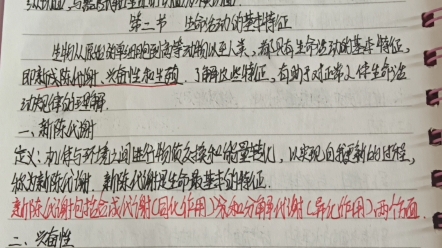 第二节 生命活动的基本特征
生物从原始的单细胞到高等动物以至人类,都具有生命活动的基本特征,
即新陈代谢、兴奋性和生殖。了解这些特征,有助于对正常人体生命活
动规律的理解.
一、新陈代谢
定义:机体与环境之间进行物质交换和能量转化,以实现自我更新的过程,
称为新陈代谢.新陈代谢是生命最基本的特征.
新陈代谢包括合成代谢(同化作用)和分解代谢(异化作用)两个方面.
二、兴奋性